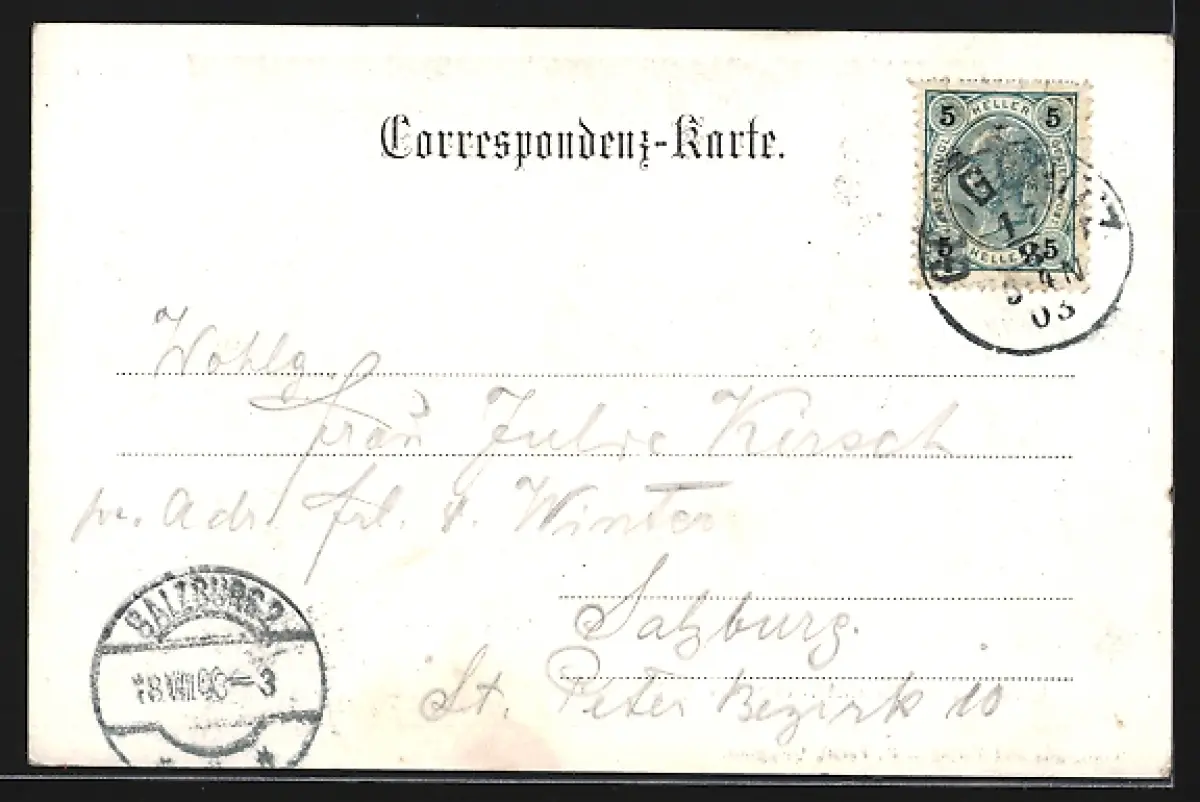 Correspondenz-Karte.
5 HELLER 5
5 HELLER 5
8
03
Wohlg.
Frau Julie Kirsch
pr. Adr. Frl. v. Winter
Salzburg.
St. Peter Bezirk 10
SALZBURG 2
3